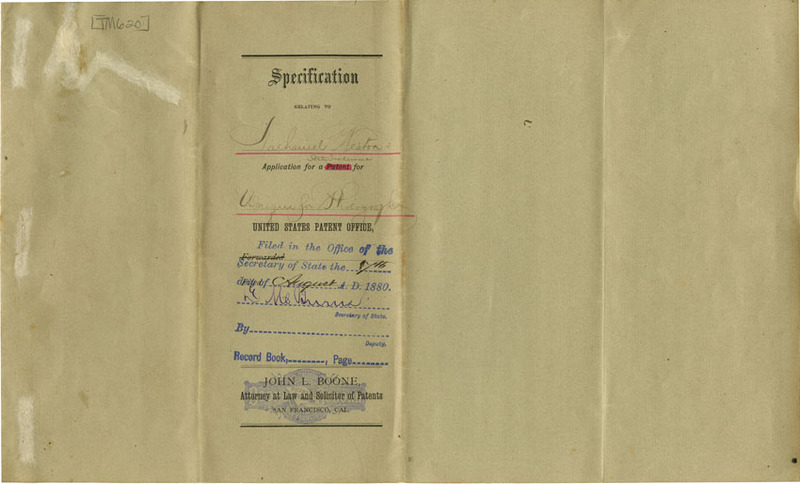 [TM620]
Specification
RELATING TO
Nathaniel Weston
State Trademark
Application for a Patent for
Unique for Photographs
UNITED STATES PATENT OFFICE,
Filed in the Office of the
Forwarded
Secretary of State the 17th
day of August A. D. 1880.
Secretary of State.
By
Deputy.
Record Book, , Page
JOHN L. BOONE,
Attorney at Law and Solicitor of Patents
SAN FRANCISCO, CAL.